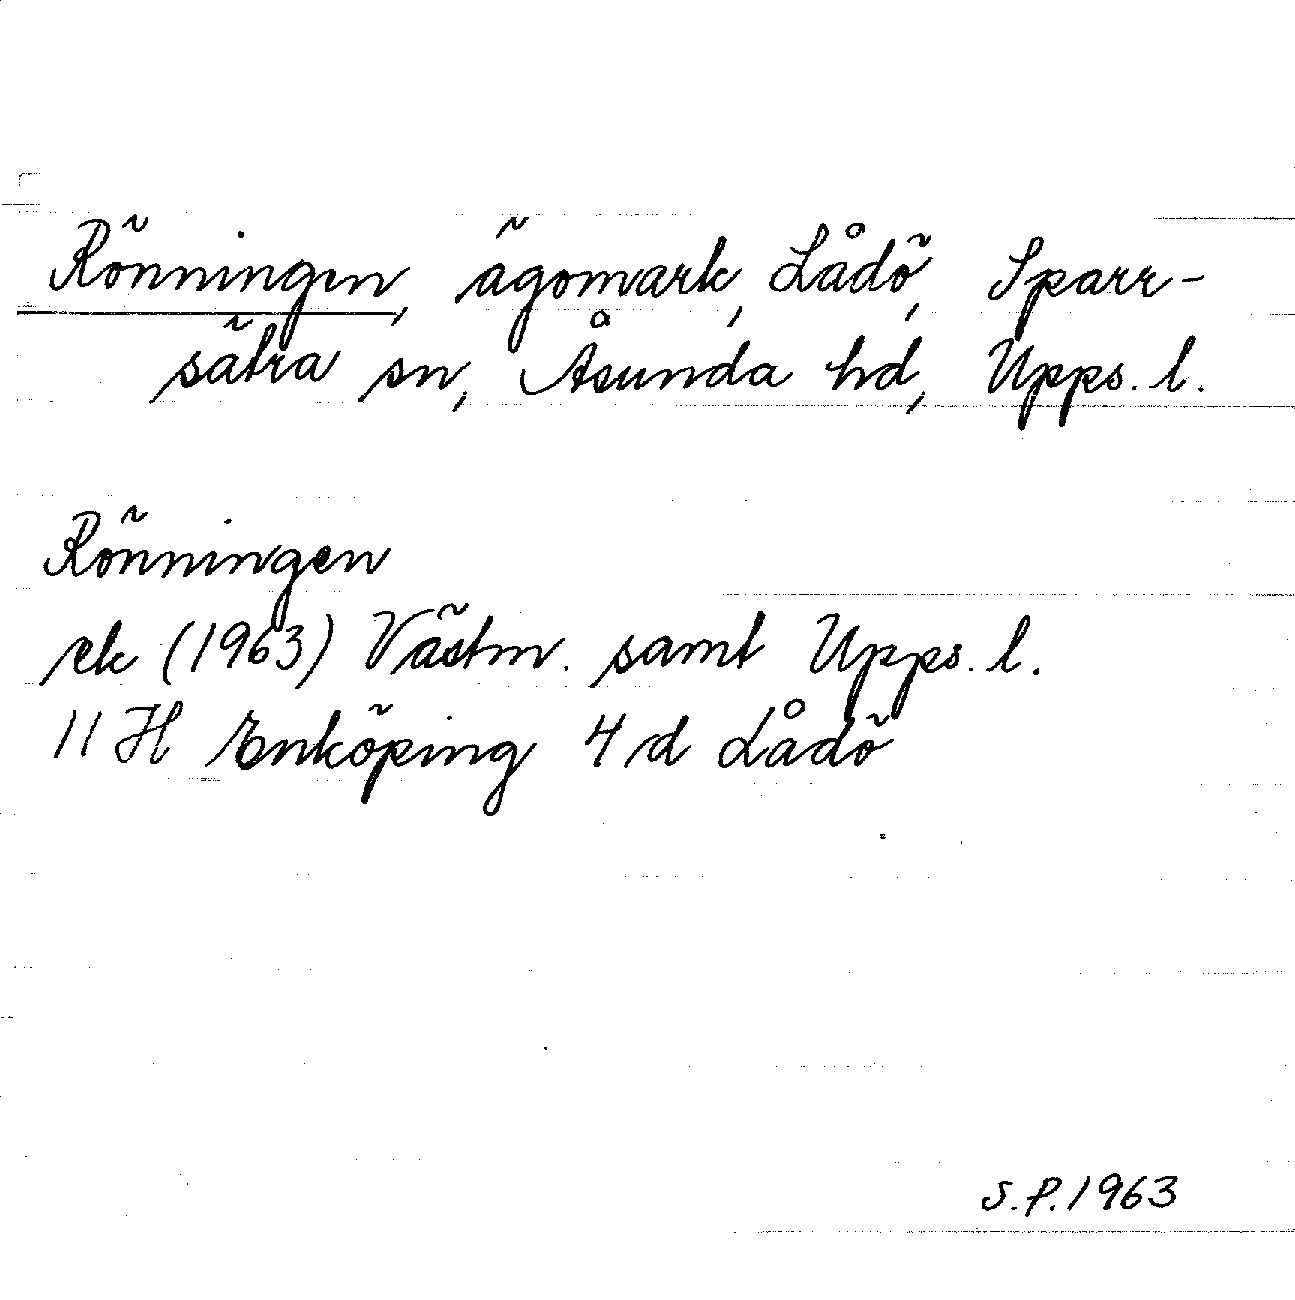 Rönningen, ägomark, Lådö, Sparr-
sätra sn, Åsunda hd, Upps. l.
Rönningen
ek (1963) Västm. samt Upps. l.
11 H Enköping 4 d Lådö
S.P. 1963